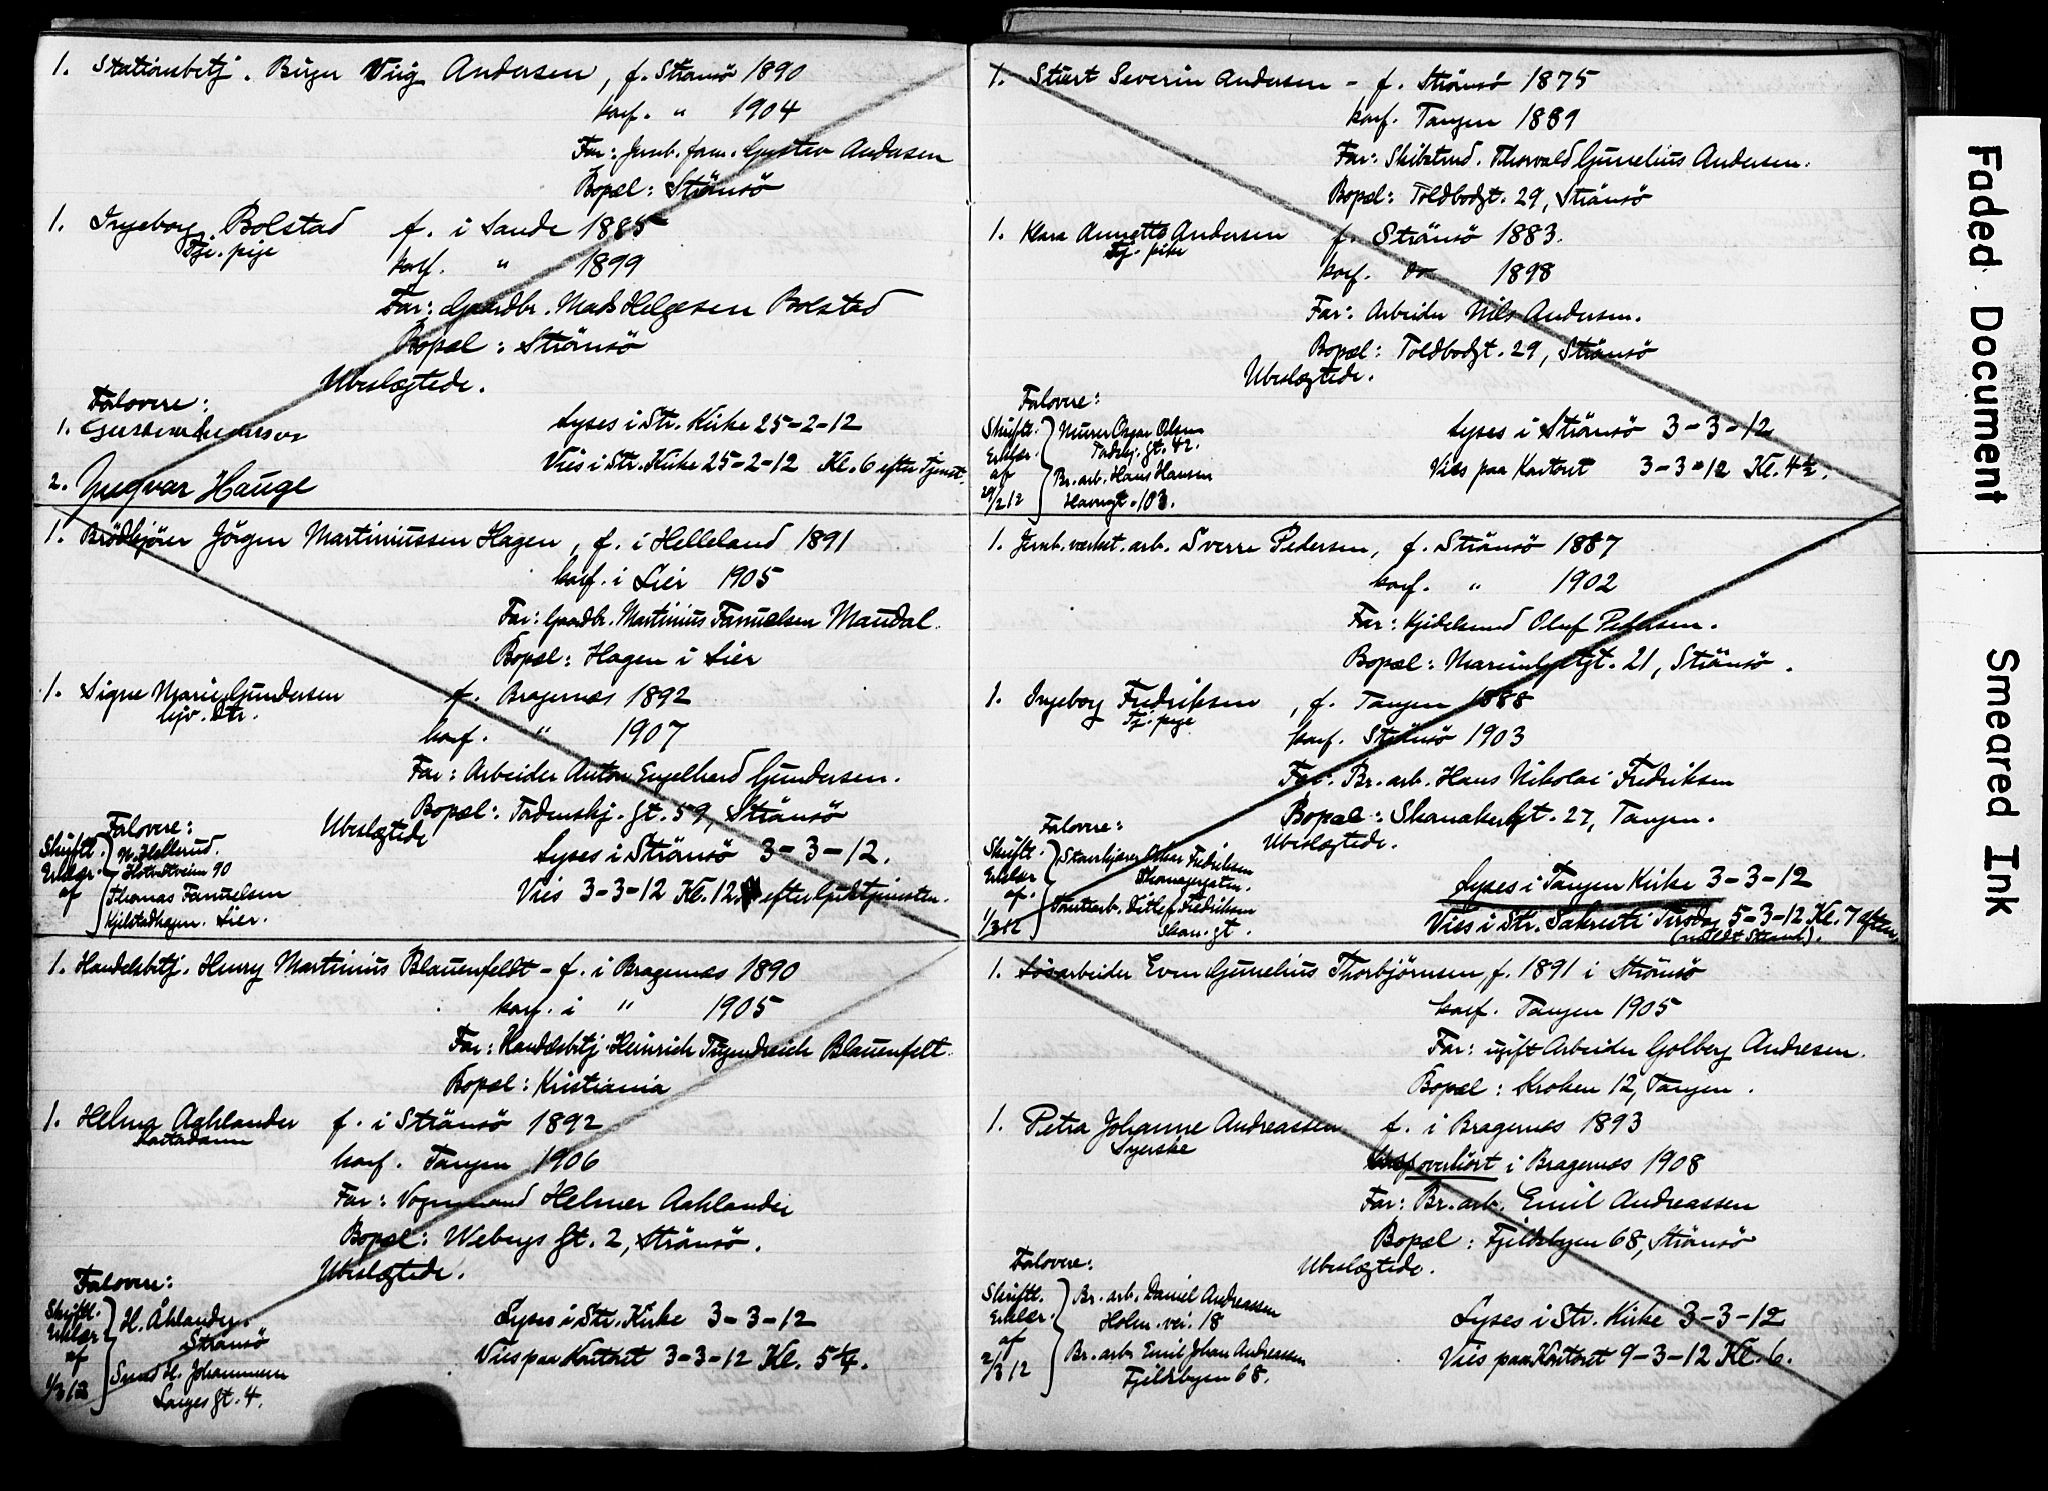 1. Stationsbetj. Birger Viig Andersen, f. Strømsö 1890
konf. " 1904
Far: Jernb. form. Gustav Andersen
Bopæl: Strömsö
1. Ingeborg Bolstad f. i Sande 1885
Tje. pige
konf. " 1899
Far: Gaardbr. Mads Helgesen Bolstad
Bopæl: Strömsö
Ubeslægtede.
Forlovere:
1. Gustav Andersen
Lyses i Str. Kirke 25-2-12
Vies i Str. Kirke 25-2-12 Kl. 6 efter tjenst.
2. Yngvar Hauge
1. Brödkjörer Jörgen Martiniussen Hagen, f. i Helleland 1891
konf. i Lier 1905
Far: Gaardbr. Martinius Fanuelsen Maudal.
Bopæl: Hagen i Lier
1. Signe Marie Gundersen f. Bragernæs 1892
hjv. Dtr.
konf. " 1907
Far: Arbeider Anton Engelhard Gundersen.
Bopæl: Tordenskj. gt. 59, Strömsö
Ubeslægtede
Forlovere:
Skriftl. Erklær. af
N. Hellerud.
Holmestveien 90
Thomas Fanuelsen
Kjelstadhagen. Lier.
Lyses i Strömsö 3-3-12.
Vies 3-3-12 Kl. 12 efter Gudstjenesten.
1. Handelsbetj. Henry Martinius Blauenfeldt - f. i Bragernæs 1890
konf. i " 1905
Far: Handelsbetj. Heinrich Tugendreich Blauenfelt.
Bopæl: Kristiania
1. Helma Aahlander f. i Strömsö 1892
konf. Tangen 1906
Far: Vognmand Helmer Aahlander
Bopæl: Webergs gt. 2, Strömsö.
Ubeslægtede.
Forlovere:
Skriftl. Erklær af 1/3 12
H. Åhlander.
Strömsö
H. Johannesen
Langes gt. 4.
Lyses i Str. Kirke 3-3-12
Vies paa Kontoret 3-3-12 Kl. 5 1/4.
1. Stuert Severin Andersen - f. Strömsö 1875
konf. Tangen 1889
Far: Skibstmd. Thorvald Gunelius Andersen.
Bopæl: Toldbodgt. 29, Strömsö
1. Klara Annette Andersen f. Strömsö 1883.
Tj. pike
konf. do 1898
Far: Arbeider Nils Andersen.
Bopæl: Toldbodgt. 29, Strömsö
Ubeslægtede.
Forlovere:
Skriftl. Erklær. af 29/2 12
Murer Oscar Olsen
Tordskj. gt. 42.
Br. arb. Hans Hansen
Havnegt. 103.
Lyses i Strömsö 3-3-12
Vies paa Kontoret 3-3-12 Kl. 4 1/2.
1. Jernb. værkst. arb. Sverre Pedersen, f. Strömsö 1887
konf. " 1902
Far: Kjedelsmed Oluf Pedersen.
Bopæl: Marienlystgt. 21, Strömsö.
1. Ingeborg Fredriksen, f. Tangen 1888
Tj. pige
konf. Strömsö 1903
Far: Br. arb. Hans Nikolai Fredriksen
Bopæl: Skanskergt. 27, Tangen.
Ubeslægtede.
Forlovere:
Skriftl. Erklær af. 1/3 12
Oskar Fredriksen
Thornegaten.
Tomtearb. Ditlef Fredriksen
Skan. gt.
Lyses i Tangen Kirke 3-3-12
Vies i Str. Sakristi Tirsdag 5-3-12 Kl. 7 aften.
1. Løsarbeider Even Gunelius Thorbjörnsen, f. 1891 i Strömsö
konf. Tangen 1905
Far: ugift Arbeider Golberg Andresen.
Bopæl: Kroken 12, Tangen.
1. Petra Johanne Andreassen f. i Bragernæs 1893
Syerske
konf overhört i Bragernæs 1908
Far: Br. arb. Emil Andreassen
Bopæl: Fjeldbyen 68, Strömsö
Ubeslægtede.
Forlovere:
Skriftl. Erklær. af 2/3 12
Br. arb. Daniel Andreassen
Holm. vei. 18
Br. arb. Emil Johan Andreassen
Fjeldbyen 68.
Lyses i Str. Kirke 3-3-12
Vies paa Kontoret 9-3-12 Kl. 6.
Faded Document
Smeared Ink